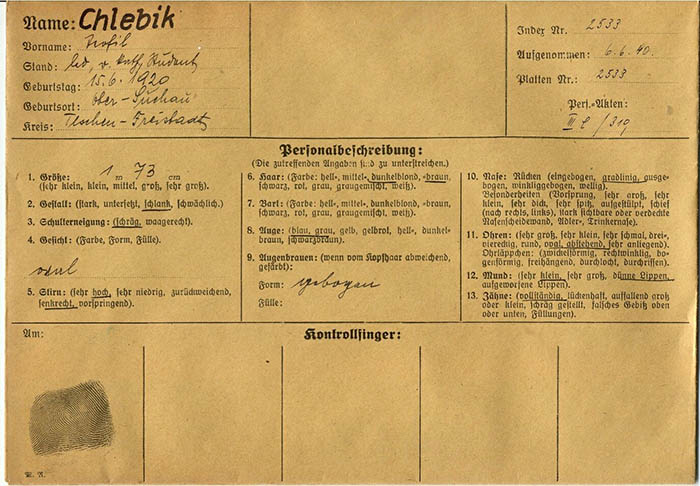 Name: Chlebik
Vorname: Trofil
Stand: led, r. kath, Student
Geburtstag: 15.6.1920
Geburtsort: Ober-Suchau
Kreis: Teschen-Freistadt
Index Nr. 2533
Aufgenommen: 6.6.40.
Platten Nr.: 2533
Pers.-Akten:
III C/319
Personalbeschreibung:
(Die zutreffenden Angaben sind zu unterstreichen.)
1. Größe: 1 m 73 cm
(sehr klein, klein, mittel, groß, sehr groß).
2. Gestalt: (stark, untersetzt, schlank, schwächlich.)
3. Schulterneigung: (schräg, waagerecht.)
4. Gesicht: (Farbe, Form, Fülle).
oval
5. Stirn: (sehr hoch, sehr niedrig, zurückweichend,
senkrecht, vorspringend).
6. Haar: (Farbe: hell-, mittel-, dunkelblond, -braun,
schwarz, rot, grau, graugemischt, weiß).
7. Bart: (Farbe: hell-, mittel-, dunkelblond, -braun,
schwarz, rot, grau, graugemischt, weiß).
8. Auge: (blau, grau, gelb, gelbrot, hell-, dunkel-
braun, schwarzbraun).
9. Augenbrauen: (wenn vom Kopfhaar abweichend,
gefärbt):
Form: gebogen
Fülle:
10. Nase: Rücken (eingebogen, gradlinig, ausge-
bogen, winkliggebogen, wellig).
Besonderheiten (Vorsprung, sehr groß, sehr
klein, sehr dick, sehr spitz, aufgestülpt, schief
(nach rechts, links), stark sichtbare oder verdeckte
Nasenscheidewand, Adler-, Trinkernase).
11. Ohren: (sehr groß, sehr klein, sehr schmal, drei-,
viereckig, rund, oval, abstehend, sehr anliegend).
Ohrläppchen: (zwickelförmig, rechtwinklig, bo-
genförmig, freihängend, durchlocht, durchrissen).
12. Mund: (sehr klein, sehr groß, dünne Lippen,
aufgeworfene Lippen).
13. Zähne: (vollständig, lückenhaft, auffallend groß
oder klein, schräg gestellt, falsches Gebiß oben
oder unten, Füllungen).
Am:
Kontrollfinger: